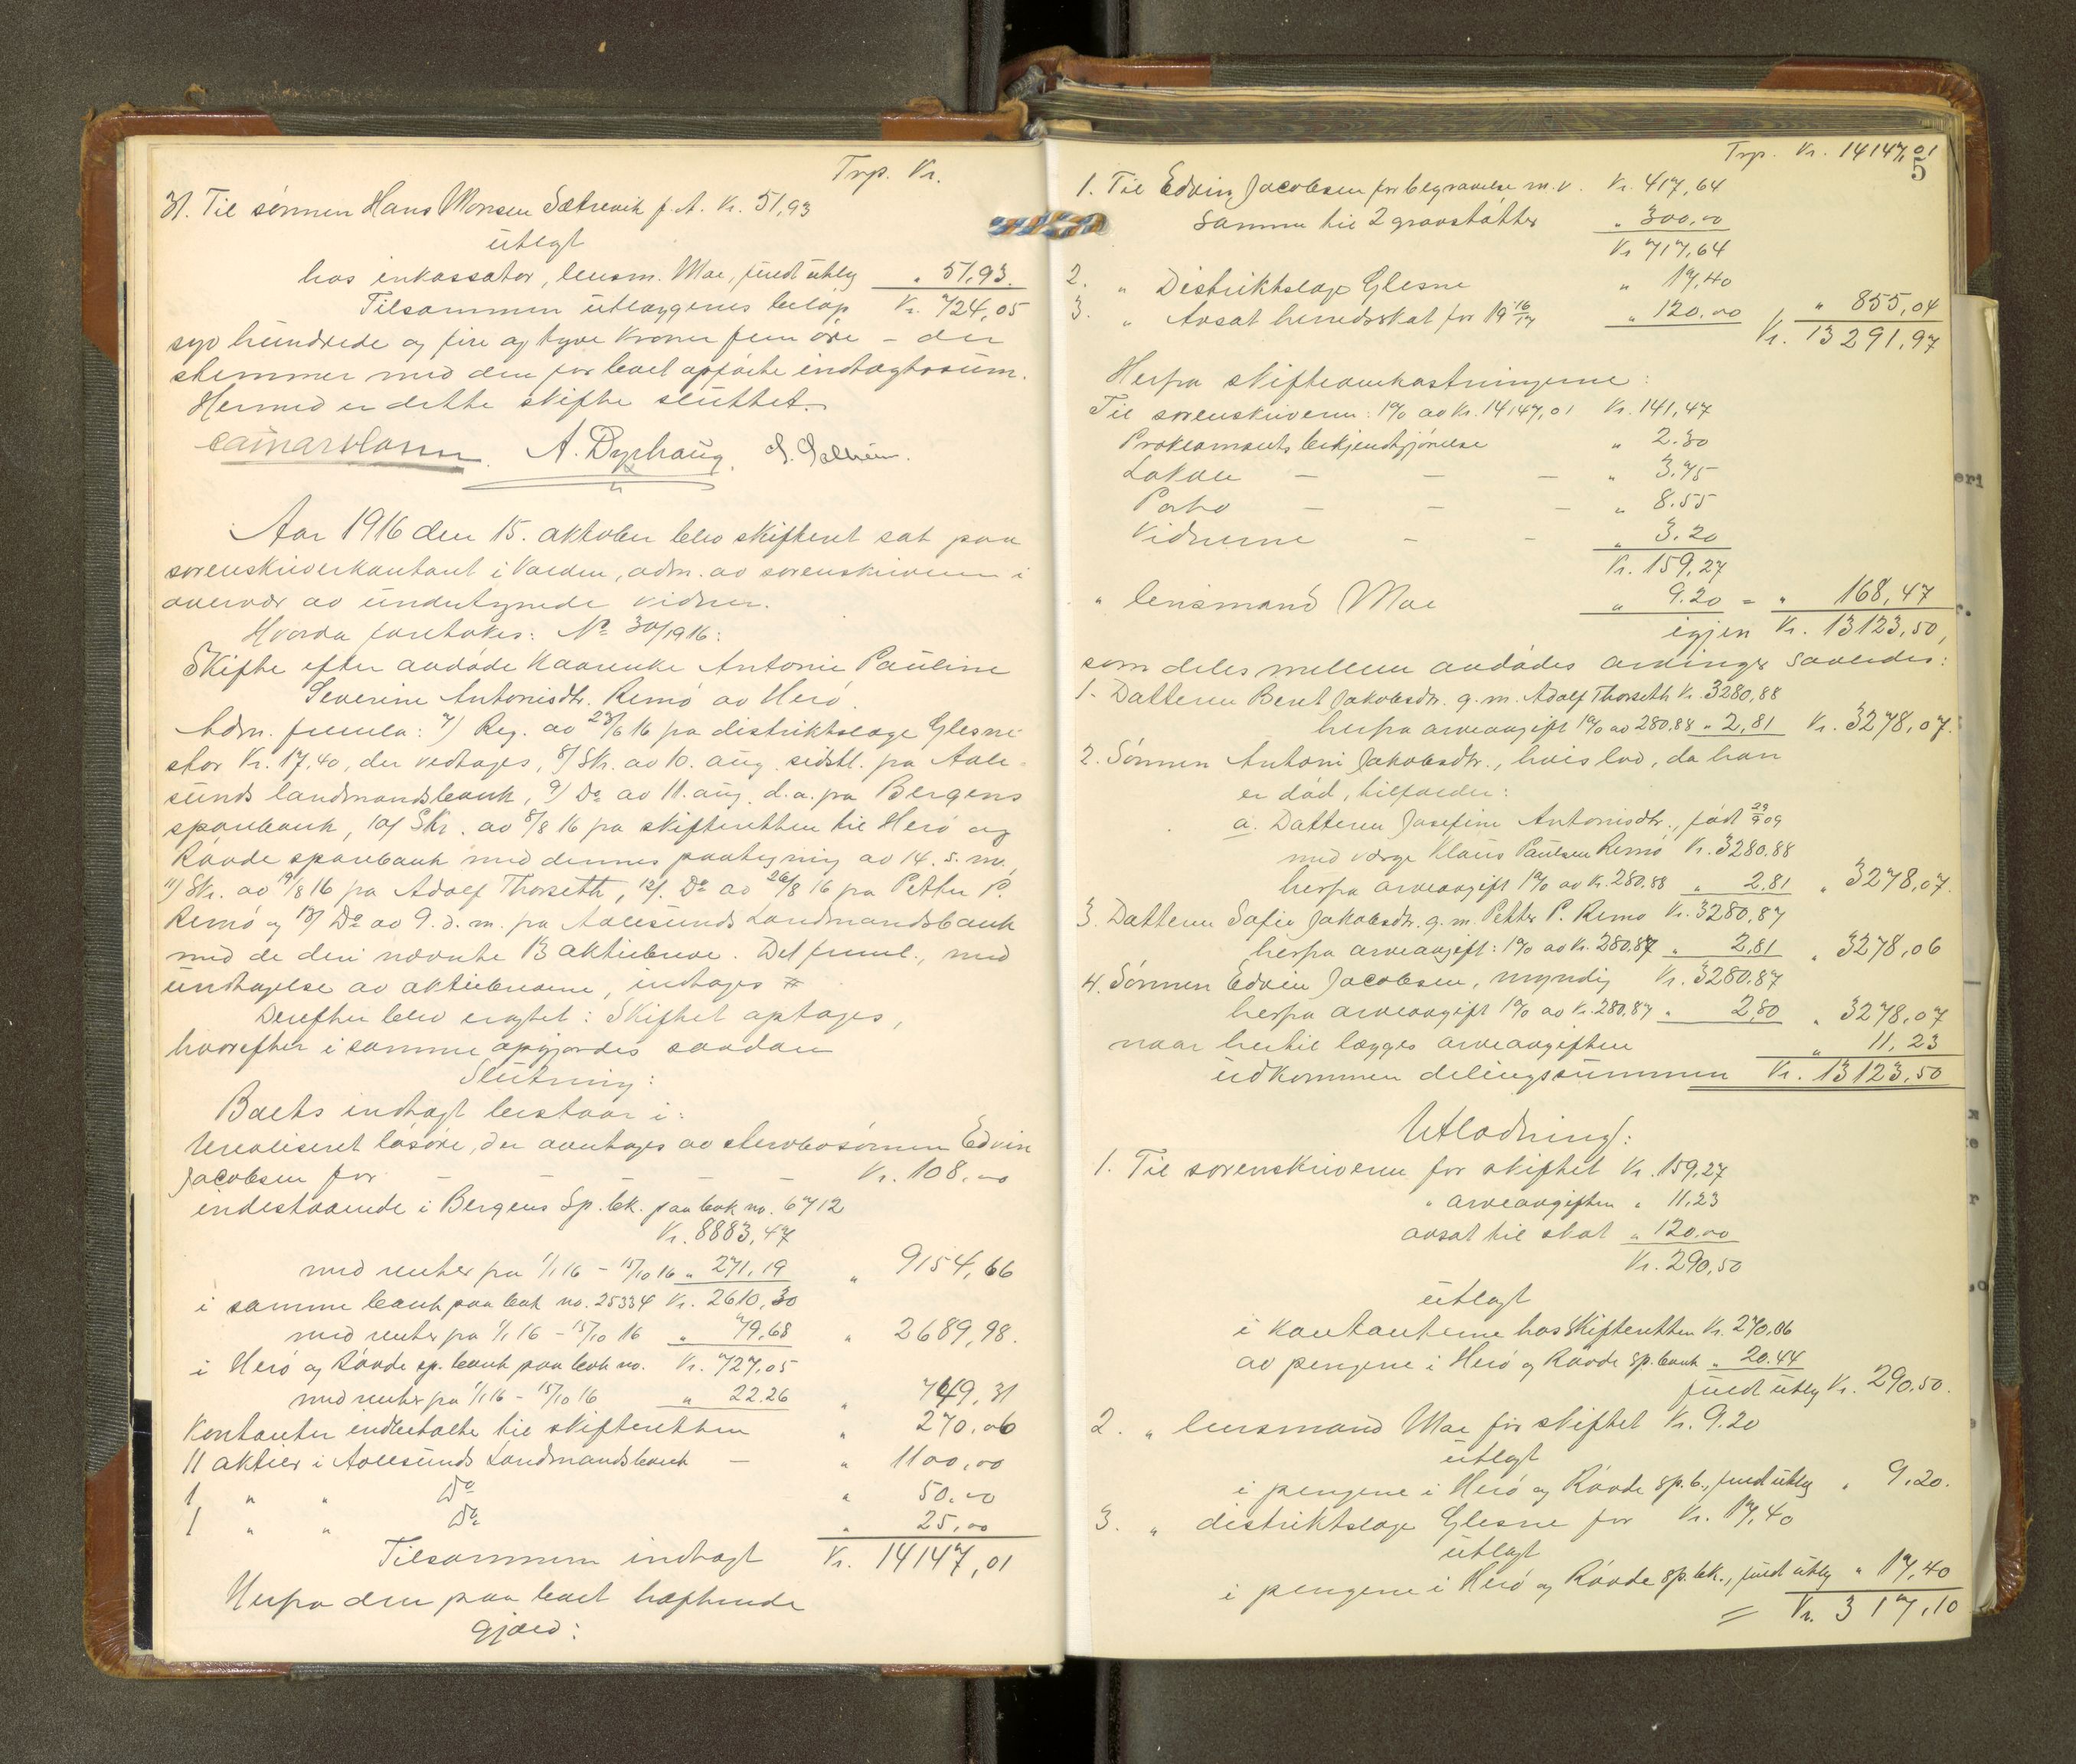 Trp. Kr.
31. Til sønnen Hans Monsen Sætrevik f. A. Kr. 51,93
utlagt
hos inkassator, lensm. Moe, fuldt utlæg „ 51,93.
Tilsammen utlæggenes beløp Kr. 724,05
syv hundrede og fire og tyve kroner fem øre – der
stemmer med den for boet opførte indtægtssum.
Hermed er dette skifte sluttet.
A. Dyrhaug. S. Solheim.
Aar 1916 den 15. oktober blev skifteret sat paa
sorenskriverkontoret i Volden, adm. av sorenskriveren i
overvær av undertegnede vidner.
Hvorda foretokes: No 30/1916:
Skifte efter avdøde Kaarenke Antonie Pauline
Severine Antonisdtr. Remø av Herø.
Adm. fremla: 7) Reg. av 23/6 16 fra distriktslæge Glesne
stor Kr. 17.40, der vedtages, 8) Skr. av 10. aug. sidstl. fra Aale-
sunds landmandsbank, 9) Do av 11. aug. d.a. fra Bergens
sparebank, 10) Skr. av 8/8 16 fra skifteretten til Herø og
Røvde sparebank med dennes paategning av 14. s. m.,
11) Skr. av 19/8 16 fra Adolf Thorseth, 12). Do av 26/8 16 fra Petter P.
Remø og 13) Do av 9. d. m. fra Aalesunds Landmandsbank
med de deri nævnte 13 aktiebreve. Det freml., med
undtagelse av aktiebrevene, indtages #
Derefter blev eragtet: Skiftet optages,
hvorefter i samme opgjordes saadan
Slutning:
Boets indtægt bestaar i:
Urealiseret løsøre, der overtages av stervbosønnen Edvin
Jacobsen for – – Kr. 108,00
indestaaende i Bergens Sp. bk. paa bok no. 6712
Kr. 8883,47
med renter fra 1/1 16 – 15/10 16 „ 271,19 „ 9154,66
i samme bank paa bok no. 25334 Kr. 2610,30
med renter fra 1/1 16 – 15/10 16 „ 79,68 „ 2689,98.
i Herø og Røvde sp. bank paa bok no. Kr. 727,05
med renter fra 1/1 16 – 15/10 16 „ 22.26 „ 749,31
Kontanter indbetalte til skifteretten „ 270,06
11 aktier i Aalesunds Landmandsbank – „ 1100,00
1 „ „ Do „ 50,00
1 „ „ Do „ 25,00
Tilsammen indtægt Kr. 14147,01
Herfra den paa boet heftende
gjæld:
Trp. Kr. 14147,01
5
1. Til Edvin Jacobsen for begravelse m.v. Kr. 417,64
Samme til 2 gravstøtter „ 300,00
Kr 717,64
2. „ Distriktslæge Glesne „ 17,40
3. „ Avsat herredsskat for 19 16/17 „ 120,00 „ 855,04
Kr. 13291,97
Herfra skifteomkostningerne:
Til sorenskriveren: 1% av Kr. 14147,01 Kr. 141,47
Proklamaets bekjendtgjørelse „ 2.30
Lokale – – – „ 3.75
Porto – – – „ 8.55
Vidnerne – – „ 3.20
Kr. 159,27
„ lensmand Moe „ 9.20 = „ 168,47
igjen Kr. 13123,50,
som deles mellem avdødes arvinger saaledes:
1. Datteren Beret Jakobsdtr. g. m. Adolf Thorseth Kr. 3280,88
herfra arveavgift 1% av 280.88 „ 2,81 Kr. 3278,07.
2. Sønnen Antoni Jakobsdtr., hvis lod, da han
er død, tilfalder:
a. Datteren Josefine Antonisdtr., født 29/9 09
med værge Klaus Paulsen Remø Kr. 3280.88
herfra arveavgift 1% av Kr. 280.88 „ 2,81 „ 3278,07.
3. Datteren Sofie Jakobsdtr. g. m. Petter P. Remø Kr. 3280,87
herfra arveavgift: 1% av Kr. 280.87 „ 2,81 „ 3278,06
4. Sønnen Edvin Jacobsen, myndig Kr. 3280.87
herfra arveavgift 1% av Kr. 280.87 „ 2,80 „ 3278,07
naar hertil lægges arveavgiften „ 11,23
udkommer delingssummen Kr. 13123,50
Utlodning:
1. Til sorenskriveren for skiftet Kr. 159,27
„ arveavgiften „ 11.23
avsat til skat „ 120,00
Kr. 290,50
utlagt
i kontanterne hos skifteretten Kr. 270,06
av pengene i Herø og Røvde sp. bank „ 20.44
fuldt utlæg Kr. 290,50.
2. „ lensmand Moe for skiftet Kr. 9.20
utlagt
i pengene i Herø og Røvde sp. b., fuldt utlæg „ 9,20.
3. „ distriktslæge Glesne for Kr. 17,40
utlagt
i pengene i Herø og Røvde sp. bk., fuldt utlæg „ 17,40
= Kr. 317,10